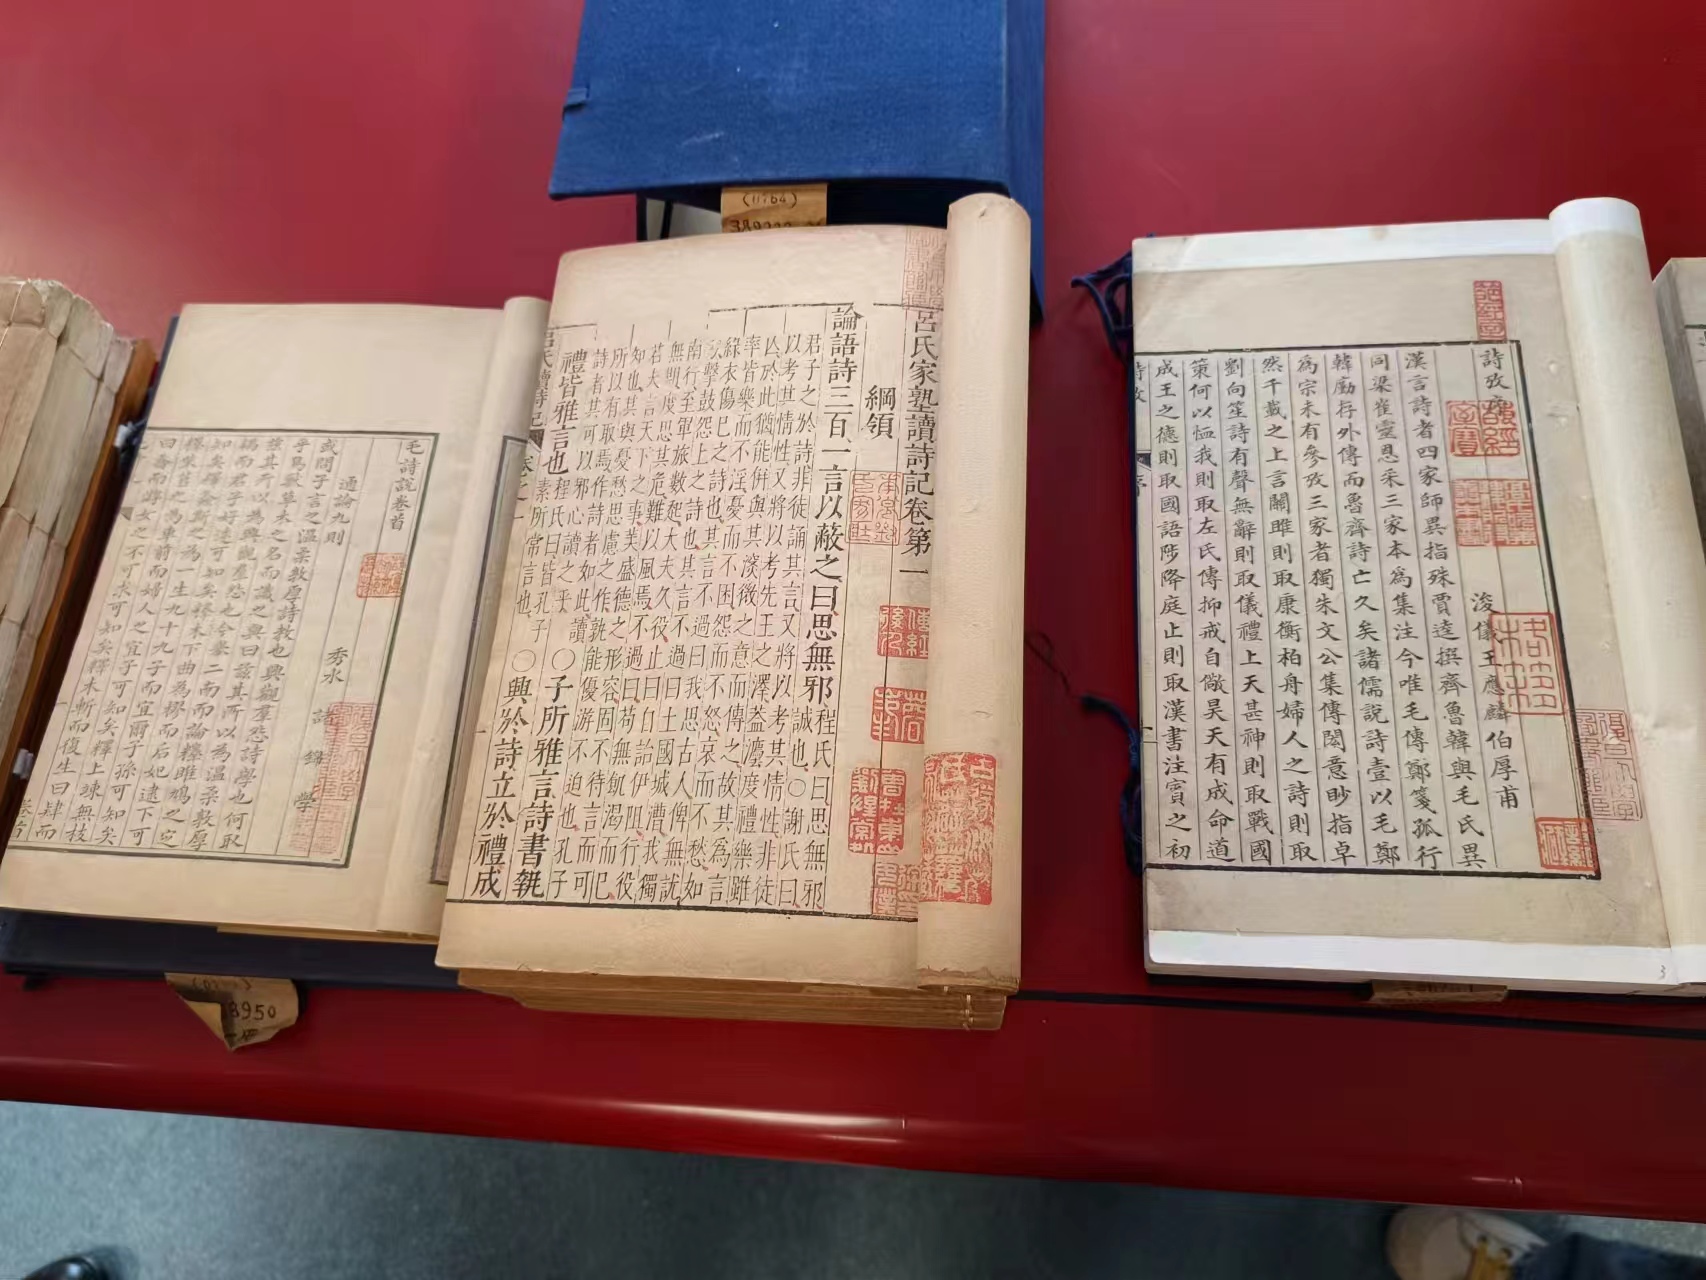 詩攷序
浚儀王應麟伯厚甫
漢言詩者四家師異指殊賈逵撰齊魯韓與毛氏異
同梁崔靈恩采三家本為集注今唯毛傳鄭箋孤行
韓廑存外傳而魯齊詩亡久矣諸儒說詩壹以毛鄭
為宗未有參攷三家者獨朱文公集傳閎意眇指卓
然千載之上言關雎則取康衡柏舟婦人之詩則取
劉向笙詩有聲無辭則取儀禮上天甚神則取戰國
策何以恤我則取左氏傳抑戒自儆昊天有成命道
成王之德則取國語陟降庭止則取漢書注賓之初
詩攷
序
呂氏家塾讀詩記卷第一
綱領
論語詩三百一言以蔽之曰思無邪程氏曰思無邪
誠也○謝氏曰
君子之於詩非徒誦其言又將以考其情性非徒
以考其情性又將以考先王之澤蓋灋度禮樂雖
亾於此猶能併與其深微之意而傳之故其為言
率皆樂而不淫憂而不困怨而不怒哀而不愁如
綠衣傷已之詩也其言不過曰我思古人俾無訧
擊鼓怨上之詩也其言不過曰土國城漕我獨
南行至軍旅數起大夫久役止曰自詒伊阻行役
無期度思其危難以風焉不過曰苟無飢渴而已
若夫言天下之事美盛德之形容固不待言而可
知也其與憂愁思慮之作孰能優游不迫也孔子
所以有取焉作詩者如此讀
詩者其可以邪心讀之乎○子所雅言詩書執
禮皆雅言也程氏曰皆孔子
素所常言也○興於詩立於禮成
呂氏讀詩記
卷之一
毛詩說卷首
秀水 諸錦 學
通論九則
或問子言之溫柔敦厚詩教也興觀羣怨詩學也何取
乎鳥獸草木之名而識之與曰茲其所以為溫柔敦厚
茲其所以為興觀羣怨也今舉二南而論雎鳩之定
偶而君子好逑可知矣樛木下曲為樛而后妃逮下可
知矣螽斯之為一生九十九子而宜爾子孫可知矣
車前而婦人之宜子可知矣釋上竦無枝
曰喬而游女之不可求可知矣釋木斬而復生曰肄而
卷首
38950